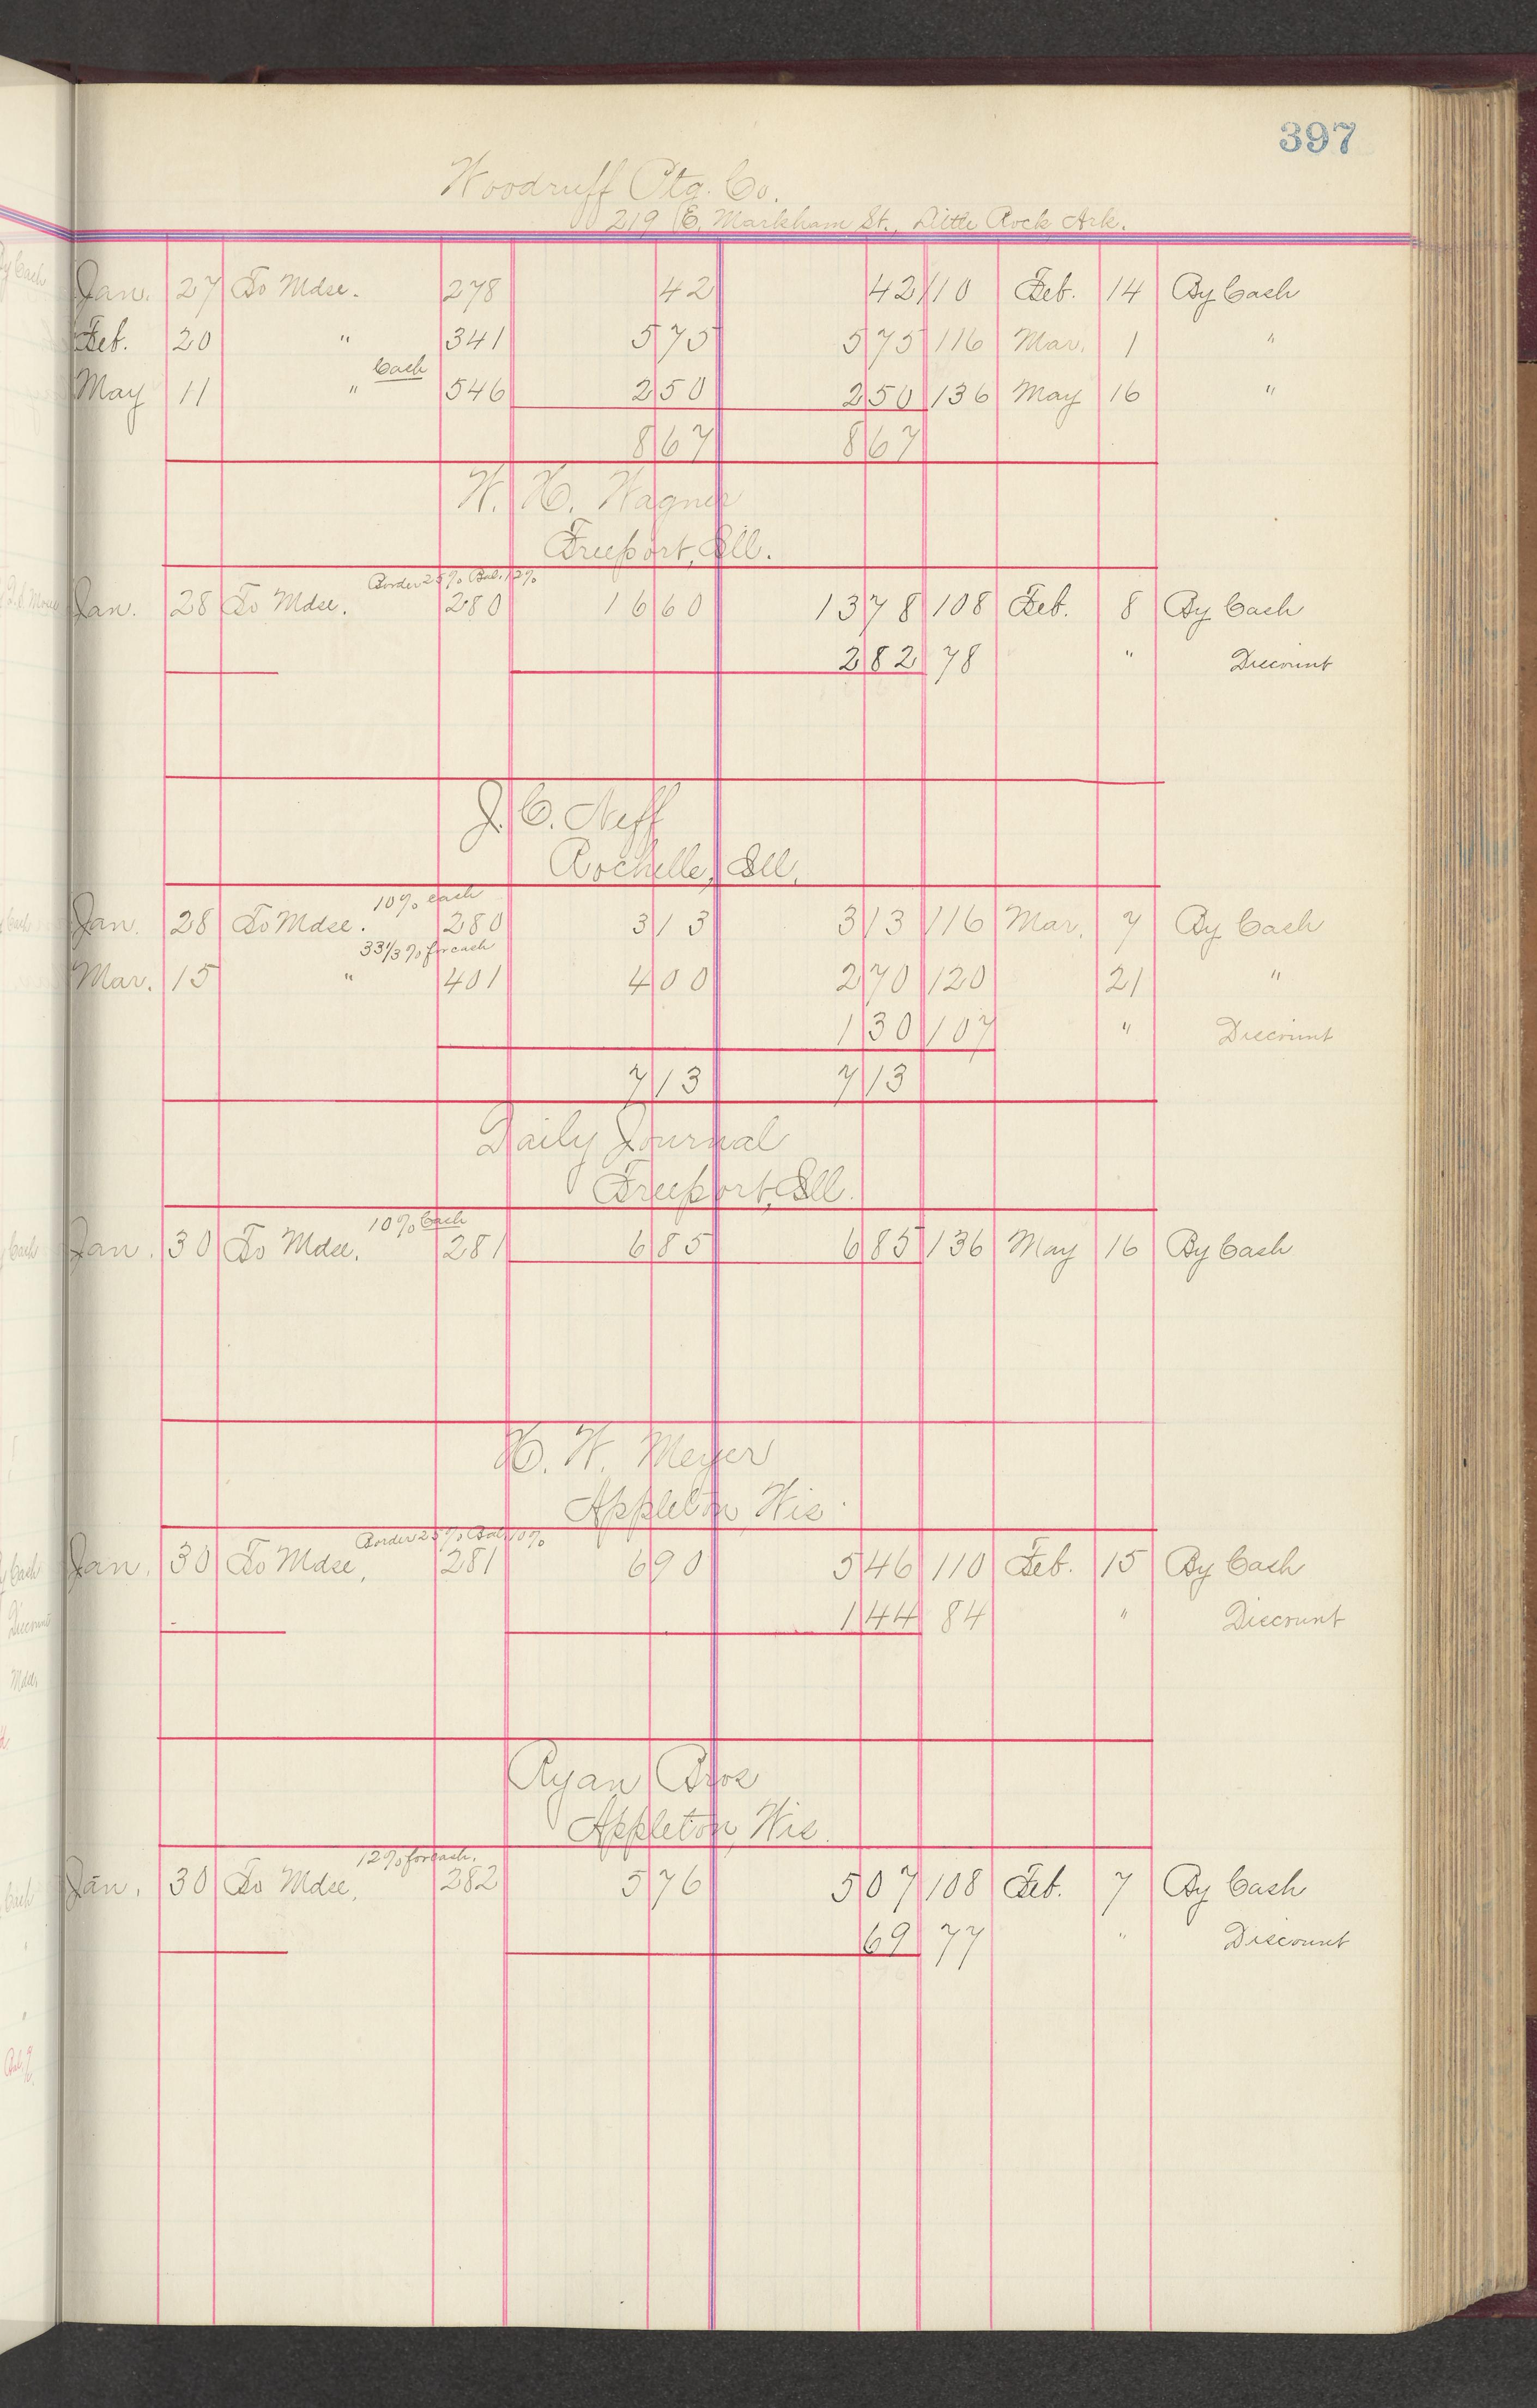 397
Woodruff Ptg. Co.
219 E. Markham St., Little Rock Ark.
Jan. 27 To Mdse. 278 42 42 110 Feb. 14 By Cash
Feb. 20 " 341 575 575 116 Mar. 1 "
Cash
May 11 " 546 250 250 136 May 16 "
867 867
W. H. Wagner
Freeport, Ill.
Border 25% Bal. 12%
Jan. 28 To Mdse. 280 1660 1378 108 Feb. 8 By Cash
282 78 " Discount
J. C. Neff
Rochelle, Ill.
10% cash
Jan. 28 To Mdse. 280 313 313 116 Mar. 7 By Cash
33 1/3% for cash
Mar. 15 " 401 400 270 120 21 "
130 107 " Discount
713 713
Daily Journal
Freeport, Ill.
10% Cash
Jan. 30 To Mdse. 281 685 685 136 May 16 By Cash
H. W. Meyer
Appleton, Wis.
Border 25% Bal. 10%
Jan. 30 To Mdse, 281 690 546 110 Feb. 15 By Cash
144 84 " Discount
Ryan Bros
Appleton, Wis.
12% for cash.
Jan. 30 To Mdse, 282 576 507 108 Feb. 7 By Cash
69 77 " Discount